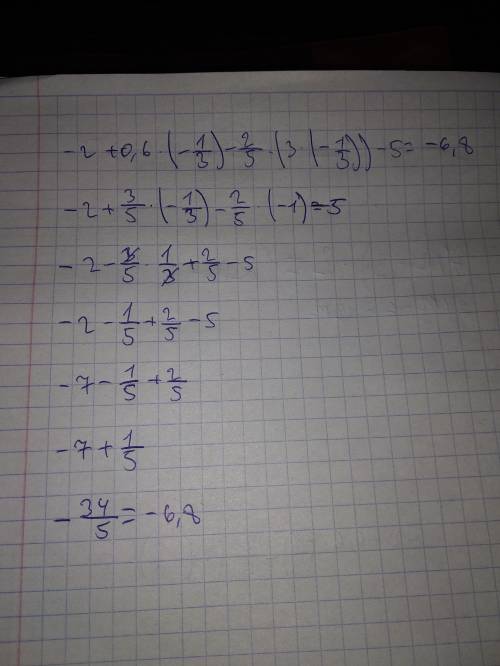 -2+0,6·(-1/3)-2/5·(3·(-1/3))-5=-6,8
-2+3/5·(-1/3)-2/5·(-1)-5
-2-3/5·1/3+2/5-5
-2-1/5+2/5-5
-7-1/5+2/5
-7+1/5
-34/5=-6,8